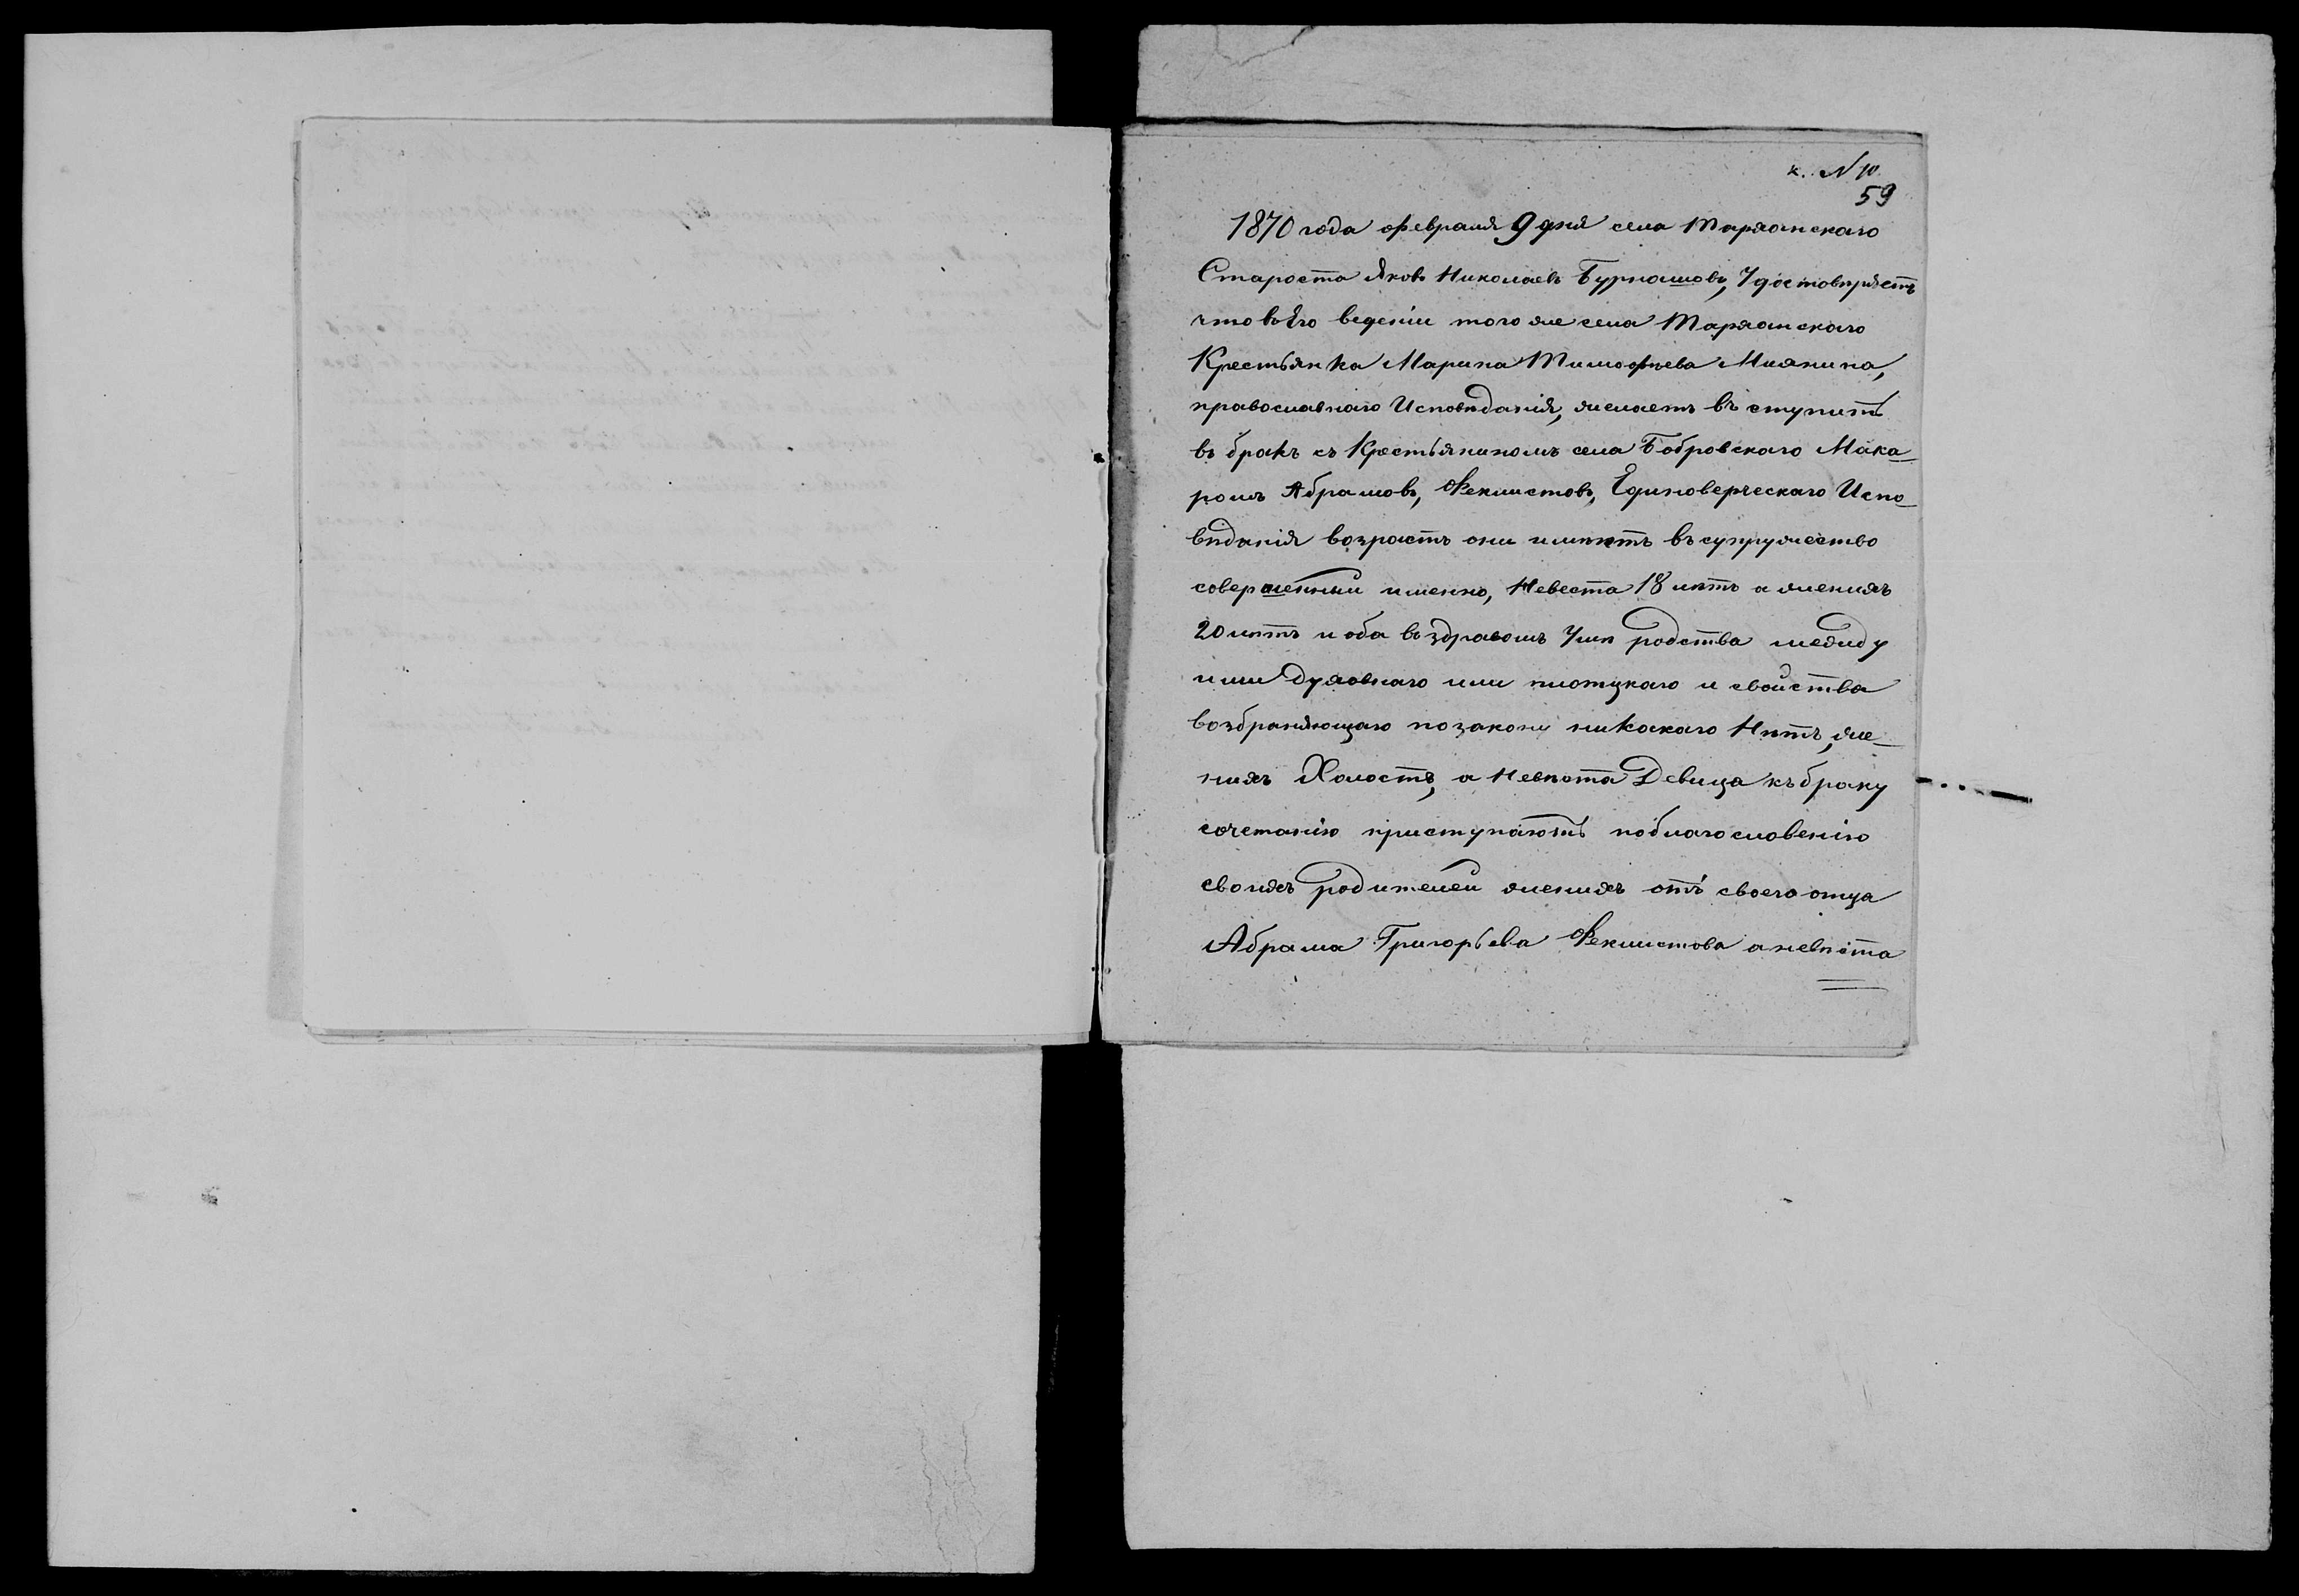 к. N 10.
59
1870 года февраля 9 дня села Тарханскаго
Староста Яковъ Николаевъ Бурнашовъ, Удостовѣряетъ
что въ Его ведѣніи того же села Тарханскаго
Крестьянка Марина Тимофѣева
православнаго Исповѣданія, желаетъ въступить
въ бракъ съ Крестьяниномъ села Бобровскаго Мака-
ромъ Абрамовъ, Фекмистовъ, Единоверческаго Испо-
вѣданія возрастъ они имѣютъ въ супружество
совершенный именно, Невеста 18 лѣтъ а женихъ
20 лѣтъ и оба въ здравомъ Умѣ родства между
ими духовнаго или плотцкаго и свойства
возбраняющаго по закону никакаго Нѣтъ, же-
нихъ Холостъ, а Невѣста Девица къ браку
сочетанію приступаютъ по благословенію
своихъ родителей женихъ отъ своего отца
Абрама Григорьева Фекмистова а невѣста